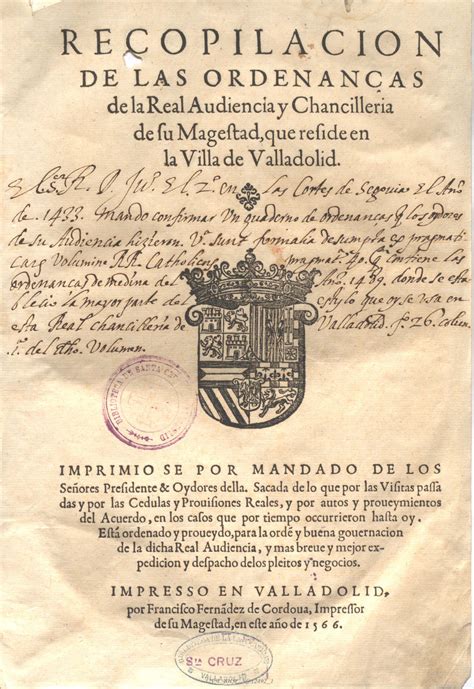 RECOPILACION
DE LAS ORDENANÇAS
de la Real Audiencia y Chancilleria
de su Magestad, que reside en
la Villa de Valladolid.
El S.or R. D. Ju.o El 2.o en las Cortes de Segovia El Año
de 1433. mando confirmar Un quaderno de ordenanças q̃ los oydores
de su Audiencia hizieron. Vt sunt formalia desumpta ex pragmati
Volumine RR. Catholicor. pragmat. 40. q̃ contiene las
ordenanças de medina del Año. 1489. donde se esta
blecio la mayor parte de estylo que oy se usa en
esta Real chancilleria de Valladolid. f.o 26. colun.
1.a del dho. Volumen.
BIBLIOTECA DE SANTA
IMPRIMIO SE POR MANDADO DE LOS
Señores Presidente & Oydores della. Sacada de lo que por las Visitas passa
das y por las Cedulas y Prouisiones Reales, y por autos y proueymientos
del Acuerdo, en los casos que por tiempo occurrieron hasta oy.
Està ordenado y proueydo, para la ordẽ y buena gouernacion
de la dicha Real Audiencia, y mas breue y mejor ex-
pedicion y despacho delos pleitos y negocios.
IMPRESSO EN VALLADOLID,
por Francisco Fernãdez de Cordoua, Impressor
de su Magestad, en este año de 1566.
VALLADOLID
Sta CRUZ